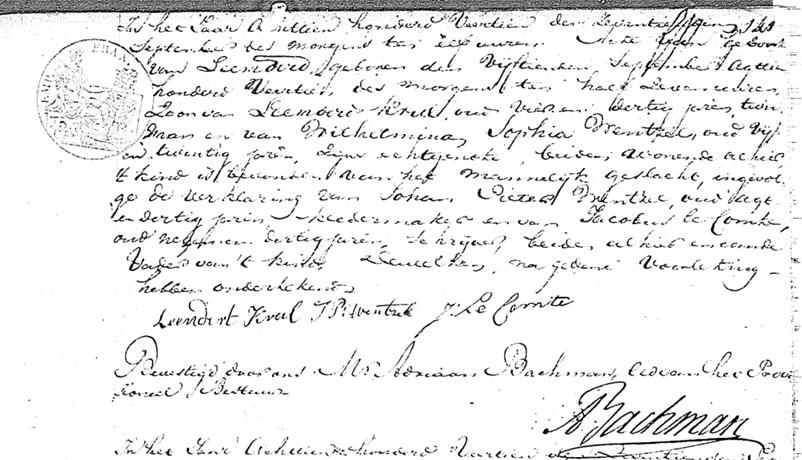 In het Jaar Achttien honderd Veertien den Zeventienden
September des morgens ten elf uuren Acte van geboorte
van Leendert, geboren den Vijftienden September Agttien
honderd Veertien, des morgens ten half Zeven uuren,
Zoon van Leendert Krul, oud Vier en dertig jaren, tuin
man en van Wilhelmina Sophia Wentzel, oud Vijf
en twintig jaren, zijne echtgenote, beiden wonende alhier
't kind is bevonden van het Mannelijk geslacht, ingevol
ge de verklaring van Johan Pieter Wentzel, oud agt
en dertig jaren kleedermaker en van Jacobus le Comte,
oud negen en dertig jaren, Schrijver, beiden alhier en de
Vader van 't kind, dewelken, na gedane Voorlezing
hebben ondertekend.
Leendert Krul J P Wentzel J. Le Comte
Bevestigd door ons Mr. Adriaan Bachman, Lid van het Provi
sioneel Bestuur
A Bachman
In het Jaar Achttien honderd Veertien den Zeventienden